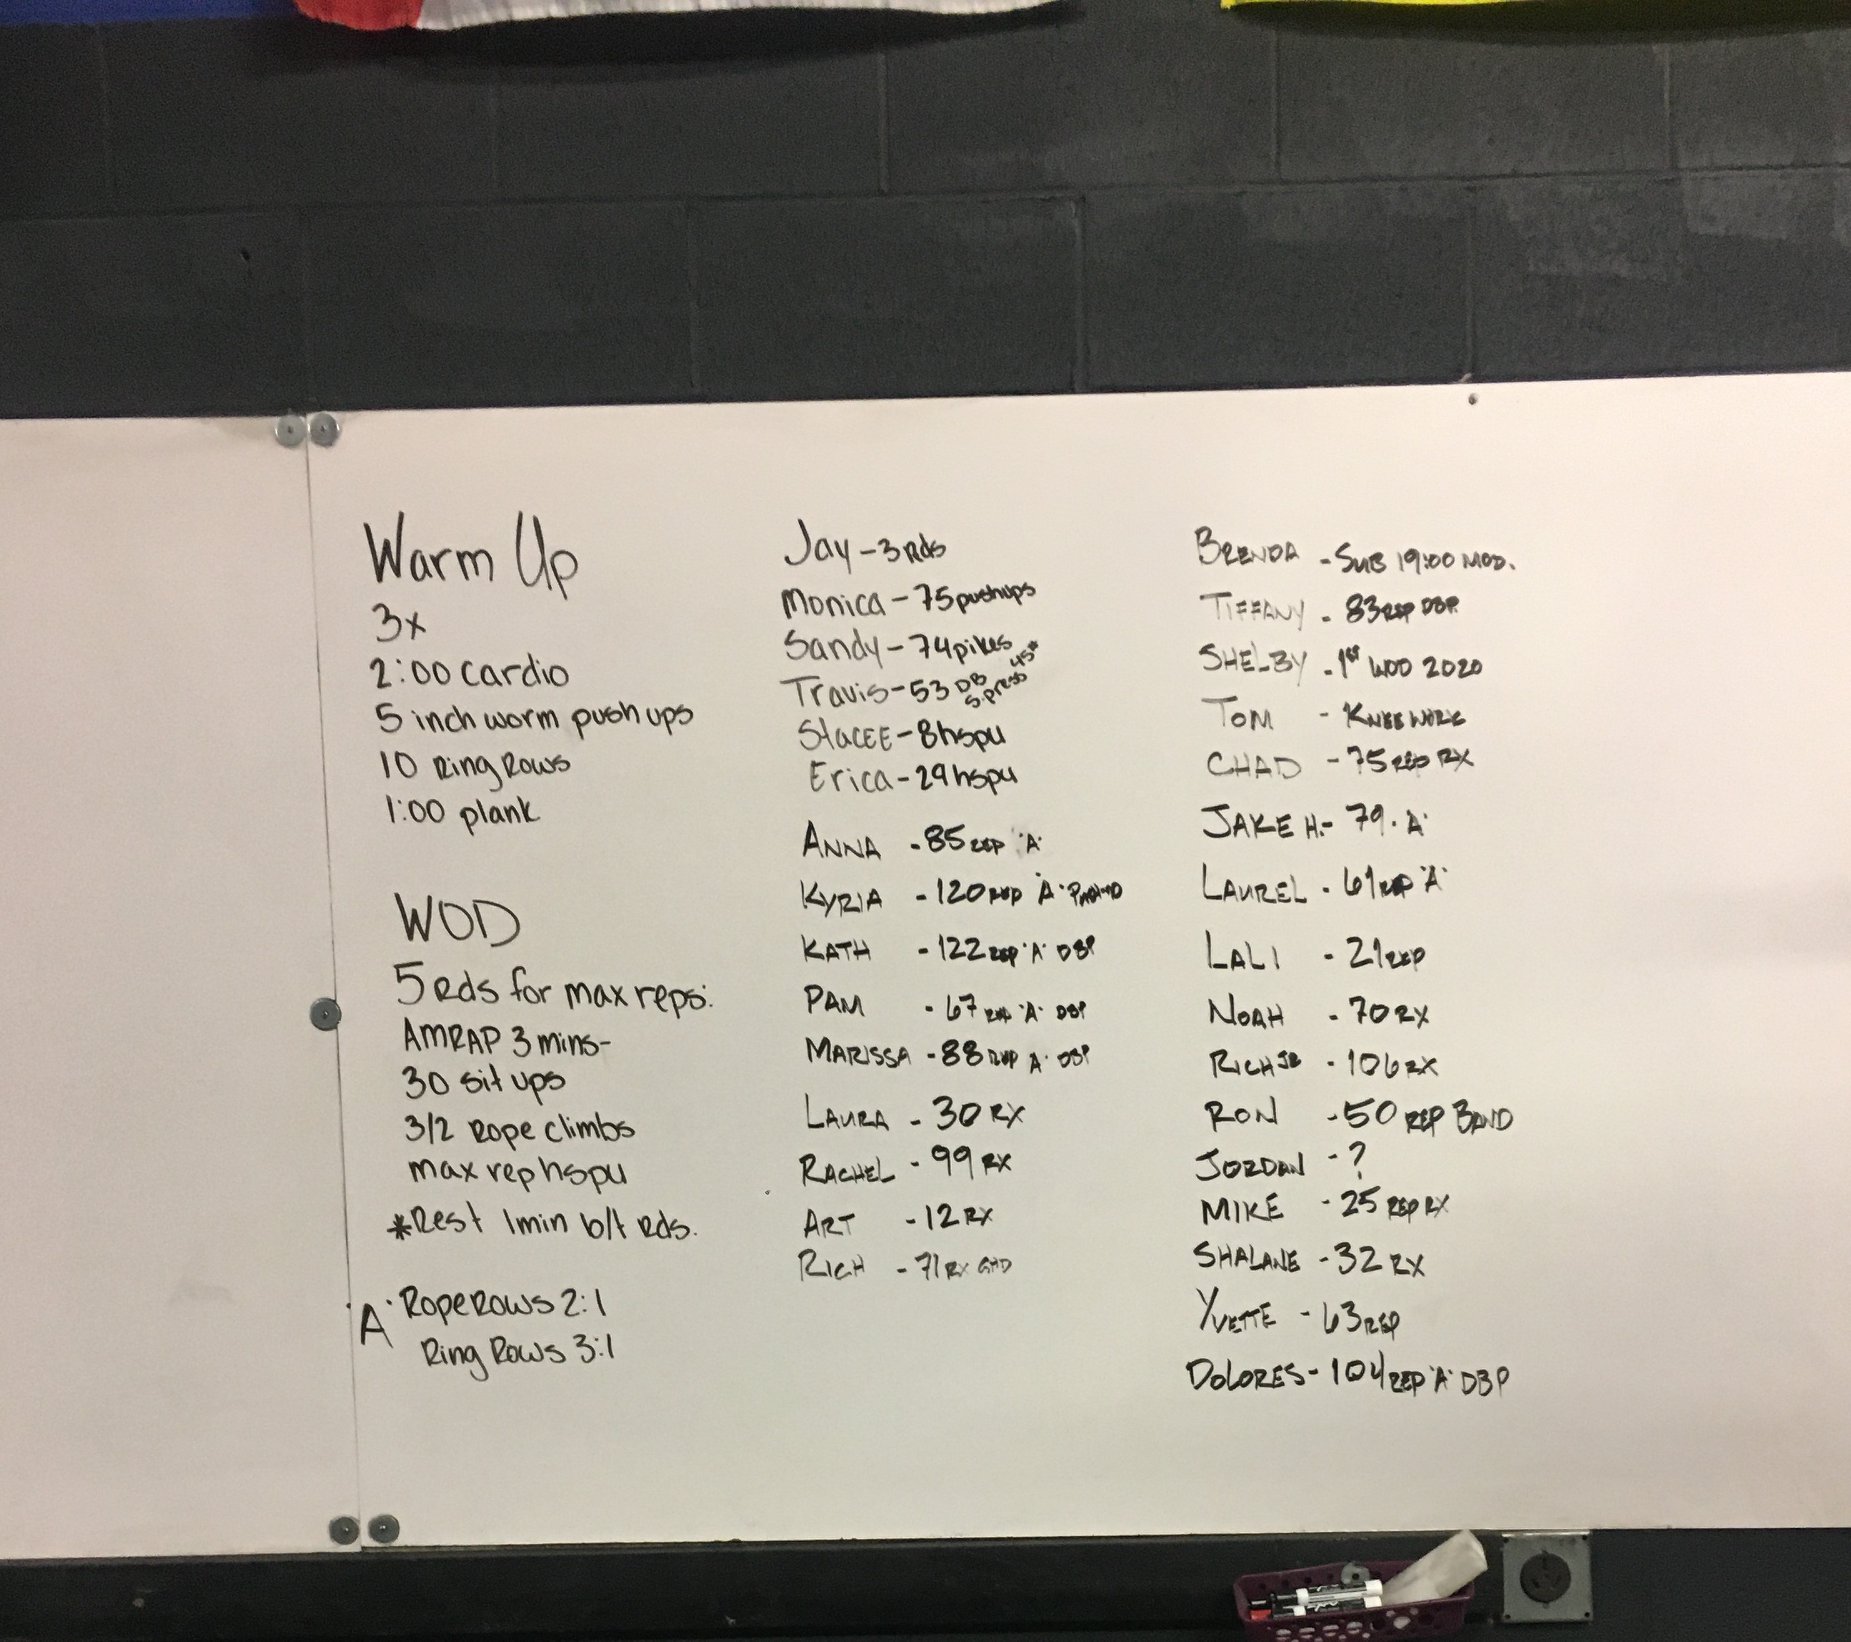 Warm Up
3x
2:00 cardio
5 inch worm push ups
10 Ring Rows
1:00 plank
WOD
5 Rds for max reps:
AMRAP 3 mins-
30 sit ups
3/2 Rope climbs
max rep hspu
*Rest 1min b/t Rds.
"A" Rope Rows 2:1
Ring Rows 3:1
Jay - 3 Rds
Monica - 75 pushups
Sandy - 74 pikes
Travis - 53 DB S.press 45#
Stacee - 8 hspu
Erica - 29 hspu
ANNA - 85 REP "A"
KYRIA - 120 REP "A"
KATH - 122 REP "A" DBP
PAM - 67 REP "A" DBP
MARISSA - 88 REP "A" DBP
LAURA - 30 RX
RACHEL - 99 RX
ART - 12 RX
RICH - 71 RX GHD
BRENDA - SUB 19:00 MOD.
TIFFANY - 83 REP DBP
SHELBY - 1ST WOD 2020
TOM - KNEE WORK
CHAD - 75 REP RX
JAKE H. - 79 "A"
LAUREL - 61 REP "A"
LALI - 21 REP
NOAH - 70 RX
RICH JR - 106 RX
RON - 50 REP BAND
JORDAN - ?
MIKE - 25 REP RX
SHALANE - 32 RX
YVETTE - 63 REP
DOLORES - 104 REP "A" DBP